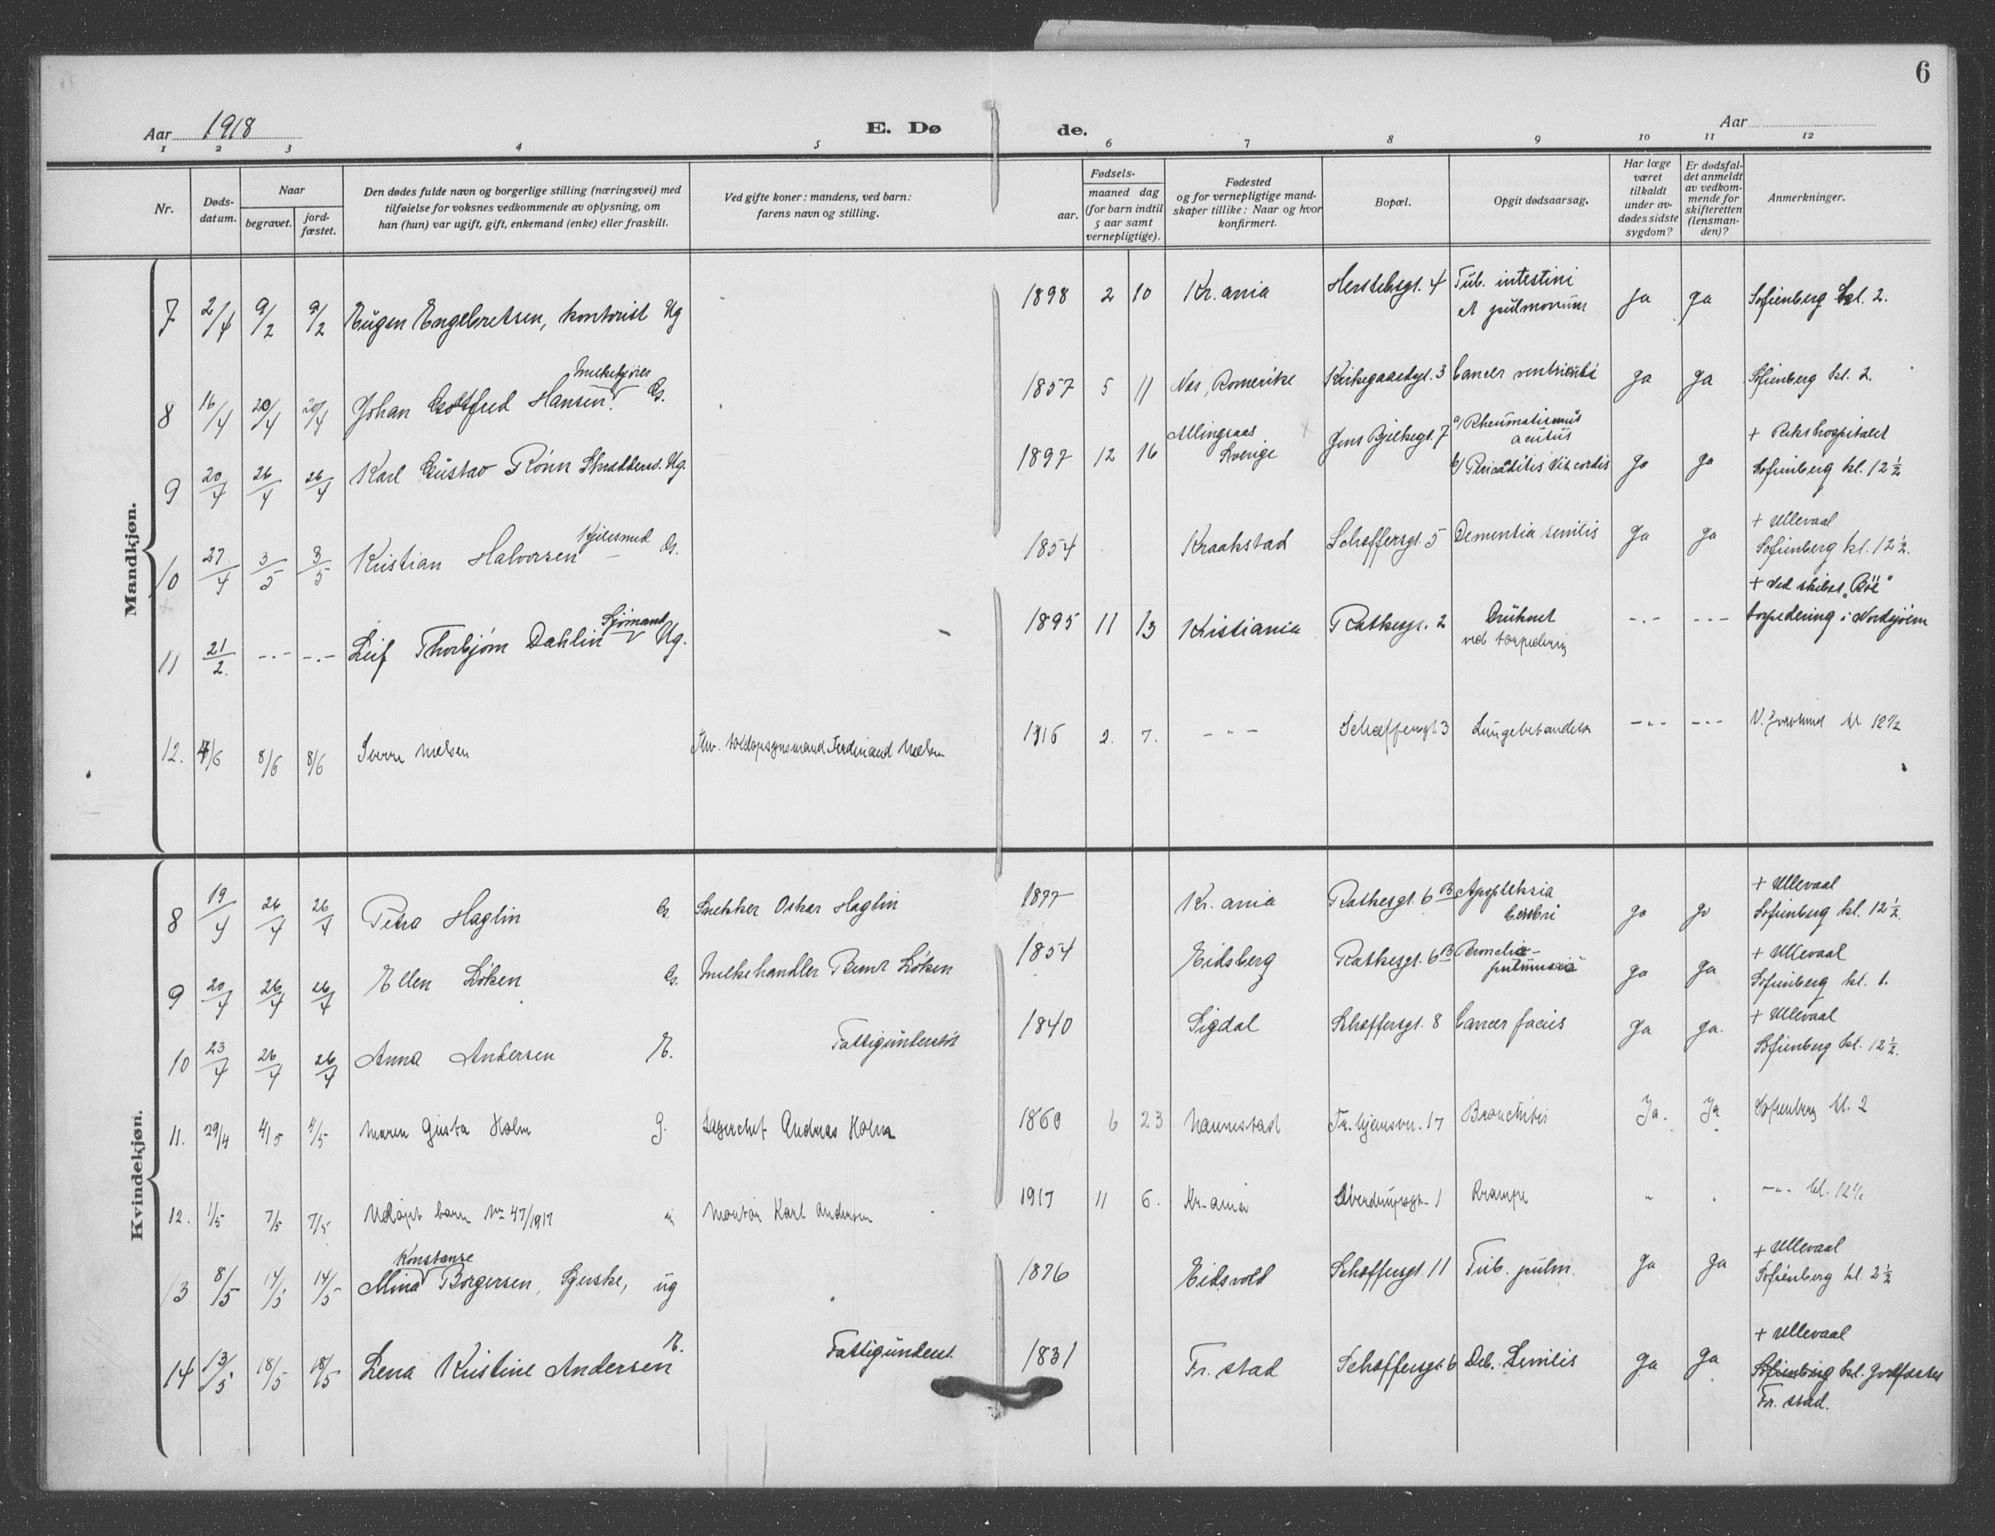 6
Aar 1918 E. Dø de. Aar
1 2 3 4 5 6 7 8 9 10 11 12
Nr.
Døds-
datum.
Naar
begravet.
jord-
fæstet.
Den dødes fulde navn og borgerlige stilling (næringsvei) med
tilføielse for voksnes vedkommende av oplysning, om
han (hun) var ugift, gift, enkemand (enke) eller fraskilt.
Ved gifte koner: mandens, ved barn:
farens navn og stilling.
Fødsels-
aar.
maaned dag
(for barn indtil
5 aar samt
vernepligtige).
Fødested
og for vernepligtige mand-
skaper tillike: Naar og hvor
konfirmert.
Bopæl.
Opgit dødsaarsag.
Har læge
været
tilkaldt
under av-
dødes sidste
sygdom?
Er dødsfal-
det anmeldt
av vedkom-
mende for
skifteretten
(lensman-
den)?
Anmerkninger.
Mandkjøn.
7 2/4 9/2 9/2 Eugen Engebretsen, kontorist Ug 1898 2 10 Kr.ania Herslebsgt. 4 Tub. intestini
et pulmonum ja ja Sofienberg kl. 2.
8 16/4 20/4 20/4 Johan Gotfred Hansen Melkekjører G. 1857 5 11 Nes, Romerike Kirkegaardsgt. 3 Cancer ventriculi ja ja Sofienberg kl. 2.
9 20/4 26/4 26/4 Karl Gustav Rönn Skrædders. Ug. 1897 12 16 Allingsaas
Sverige Jens Bjelkesgt. 7 a/ Rheumatismus
acutus
b/ Pericarditis Vit. cordis ja ja + Rikshospitalet
Sofienberg kl. 12 ½
10 27/4 3/5 3/5 Kristian Halvorsen Kjelesmed G. 1854 Kraakstad Schøffersgt. 5 Dementia senilis ja ja + Ullevaal
Sofienberg kl. 12 ½.
11 21/2 -.- -.- Leif Thorbjørn Dahlin Sjømand Ug. 1895 11 13 Kristiania Rathkesgt. 2 Druknet
ved torpedering -.- -.- + Ved skibet "Böe"
torpedering i Nordsjøen
12. 4/6 8/6 8/6 Sverre Nielsen Ferdinand Nielsen 1916 2. 7. - - - Schæffersgt 3 Lungebetændelse -.- -.- 12½
Kvindekjøn.
8 19/4 26/4 26/4 Petra Haglin G. Snekker Oskar Haglin 1877 Kr.ania Rathkesgt. 6 B Apopleksia
cerebri ja ja + Ullevaal
Sofienberg kl. 12 ½.
9 20/4 26/4 26/4 Ellen Løken G. Melkehandler Bernt Løken 1854 Eidsberg Rathkesgt. 6 B ja ja + Ullevaal
Sofienberg kl. 1.
10 23/4 26/4 26/4 Anna Andersen E. Fattigunderst 1840 Sigdal Schøffersgt. 8 Cancer facies ja ja. + Ullevaal
Sofienberg kl. 12 ½.
11. 29/4 4/5 4/5 Maren Gusta Holm g. Lagerchef Andreas Holm 1860 6 23 Nannestad 17 Bronchitis Ja. Ja Sofienberg kl. 2
12. 1/5 7/5 7/5 Udøpt barn No 47/1917 Montør Karl Andersen 1917 11 6. Kr.ania Sverdrupsgt. 1 Krampe " . -.- kl. 12½
13 8/5 14/5 14/5 Mina Konstanse Borgersen, Syerske, ug 1876 Eidsvold Schøffersgt. 11 Tub. pulm. ja ja + Ullevaal
Sofienberg kl. 2 ½
14 13/5 18/5 18/5 Lena Kristine Andersen E. Fattigunderst. 1831 Fr. stad Schøffersgt. 6 Deb. Senilis ja ja + Ullevaal
Sofienberg kl. Jordfæstes
Fr. stad.